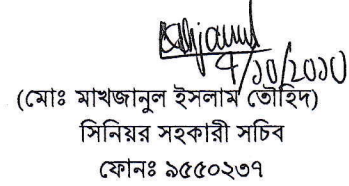 ৭/১০/২০১০
(মোঃ মাখজানুল ইসলাম তৌহিদ)
সিনিয়র সহকারী সচিব
ফোনঃ ৯৫৫০২৩৭